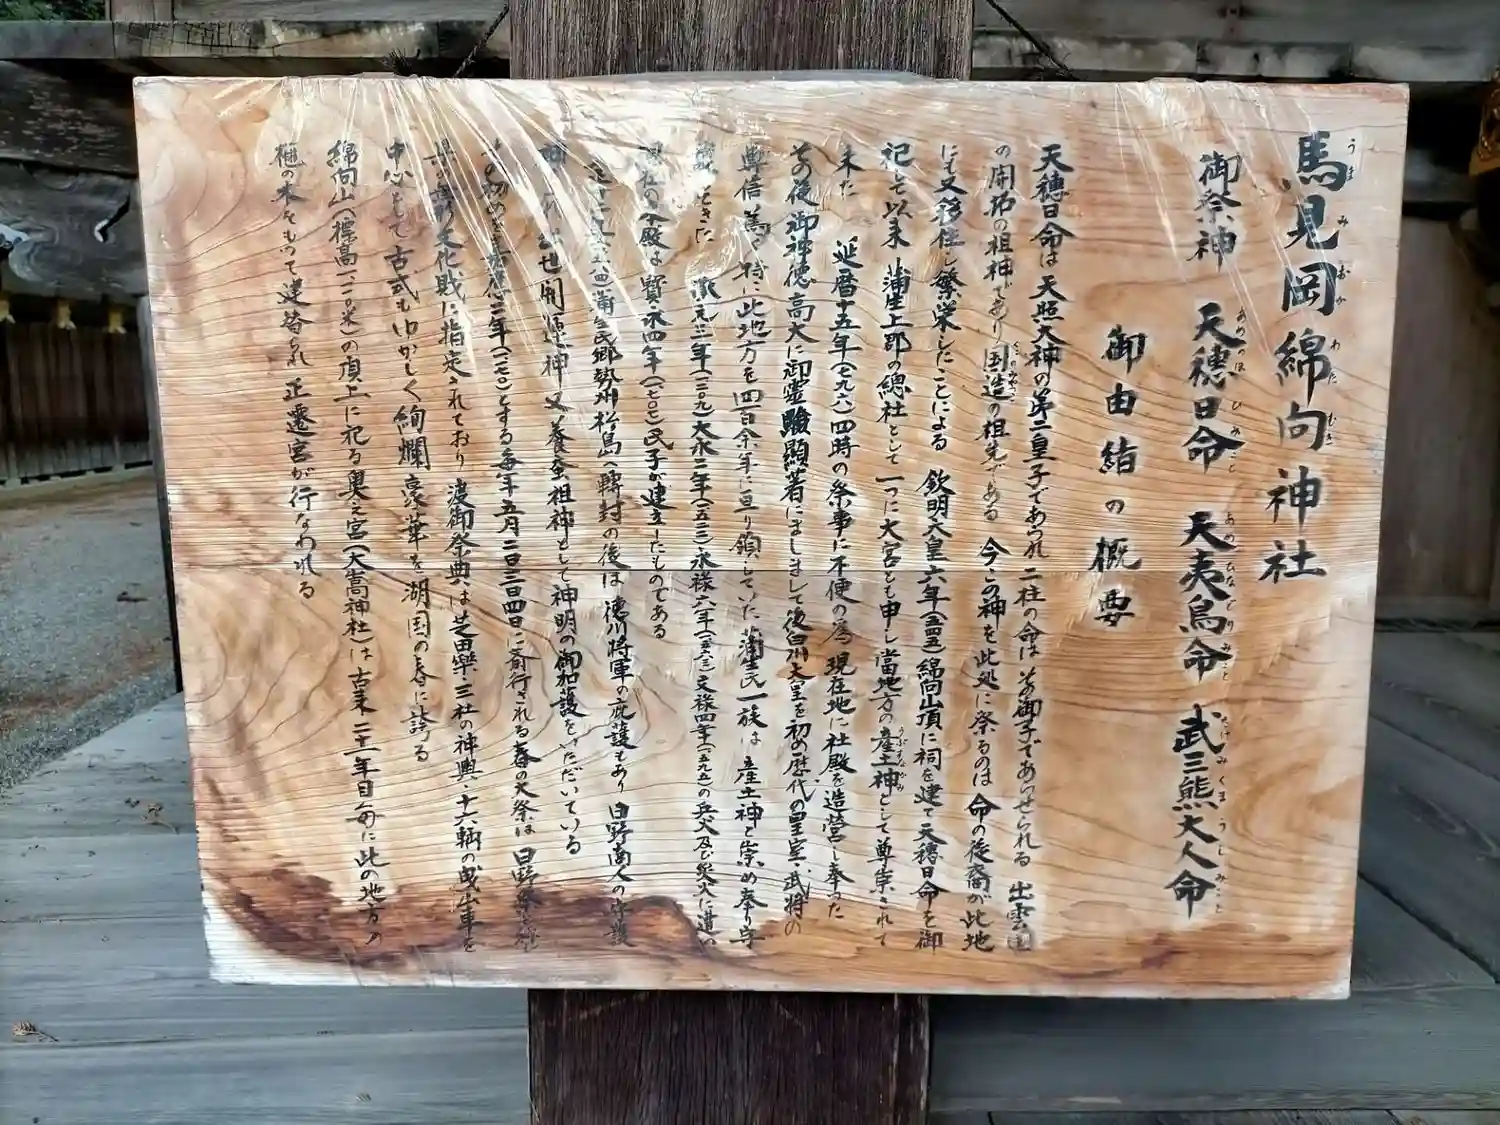 馬見岡綿向神社
うまみおかわたむき
御祭神 天穂日命 天夷鳥命 武三熊大人命
あめのほひみこと あめのひなどりみこと たけみくまうしみこと
御由緒の概要
天穂日命は天照大神の第二皇子であられ 二柱の命は その御子であらせられる 出雲国
の開拓の祖神であり国造の祖先である 今この神を此処に祭るのは 命の後裔が此地
にも又移住し繁栄したことによる 欽明天皇六年(五四五)綿向山頂に祠を建て天穂日命を御
祀して以来 蒲生上郡の總社として一つに大宮とも申し當地方の産土神として尊崇されて
来た 延暦十五年(七九六)四時の祭事に不便の為 現在地に社殿を造營し奉った
その後御神徳高大に御霊驗顕著にましまして後白河天皇を初め歴代の皇室・武將の
尊信篤く 特に此地方を四百余年に亘り領していた蒲生氏一族は 産土神と崇め奉り守
承元三年(一二〇九)大永二年(一五二二)永禄六年(一五六三)文禄四年(一五九五)の兵火及び災火に遭い
本殿は寳永四年(一七〇七)氏子が建立したものである
蒲生氏郷勢州松島へ轉封の後は徳川將軍の庇護もあり 日野商人の守護
開運神 又 養蚕祖神として神明の御加護をいただいている
二年(一一七〇)とする毎年五月二日三日四日に斎行される春の大祭は 日野祭と稱
縣の無形文化財に指定されており 渡御祭典は芝田樂・三社の神輿・十六輌の曳山車を
中心として古式もゆかしく絢爛豪華を湖国の春に誇る
綿向山(標高一一一〇米)の頂上に祀る奥之宮(大嵩神社)は 古来二十一年目毎に此の地方の
檜の木をもって建替られ 正遷宮が行なわれる